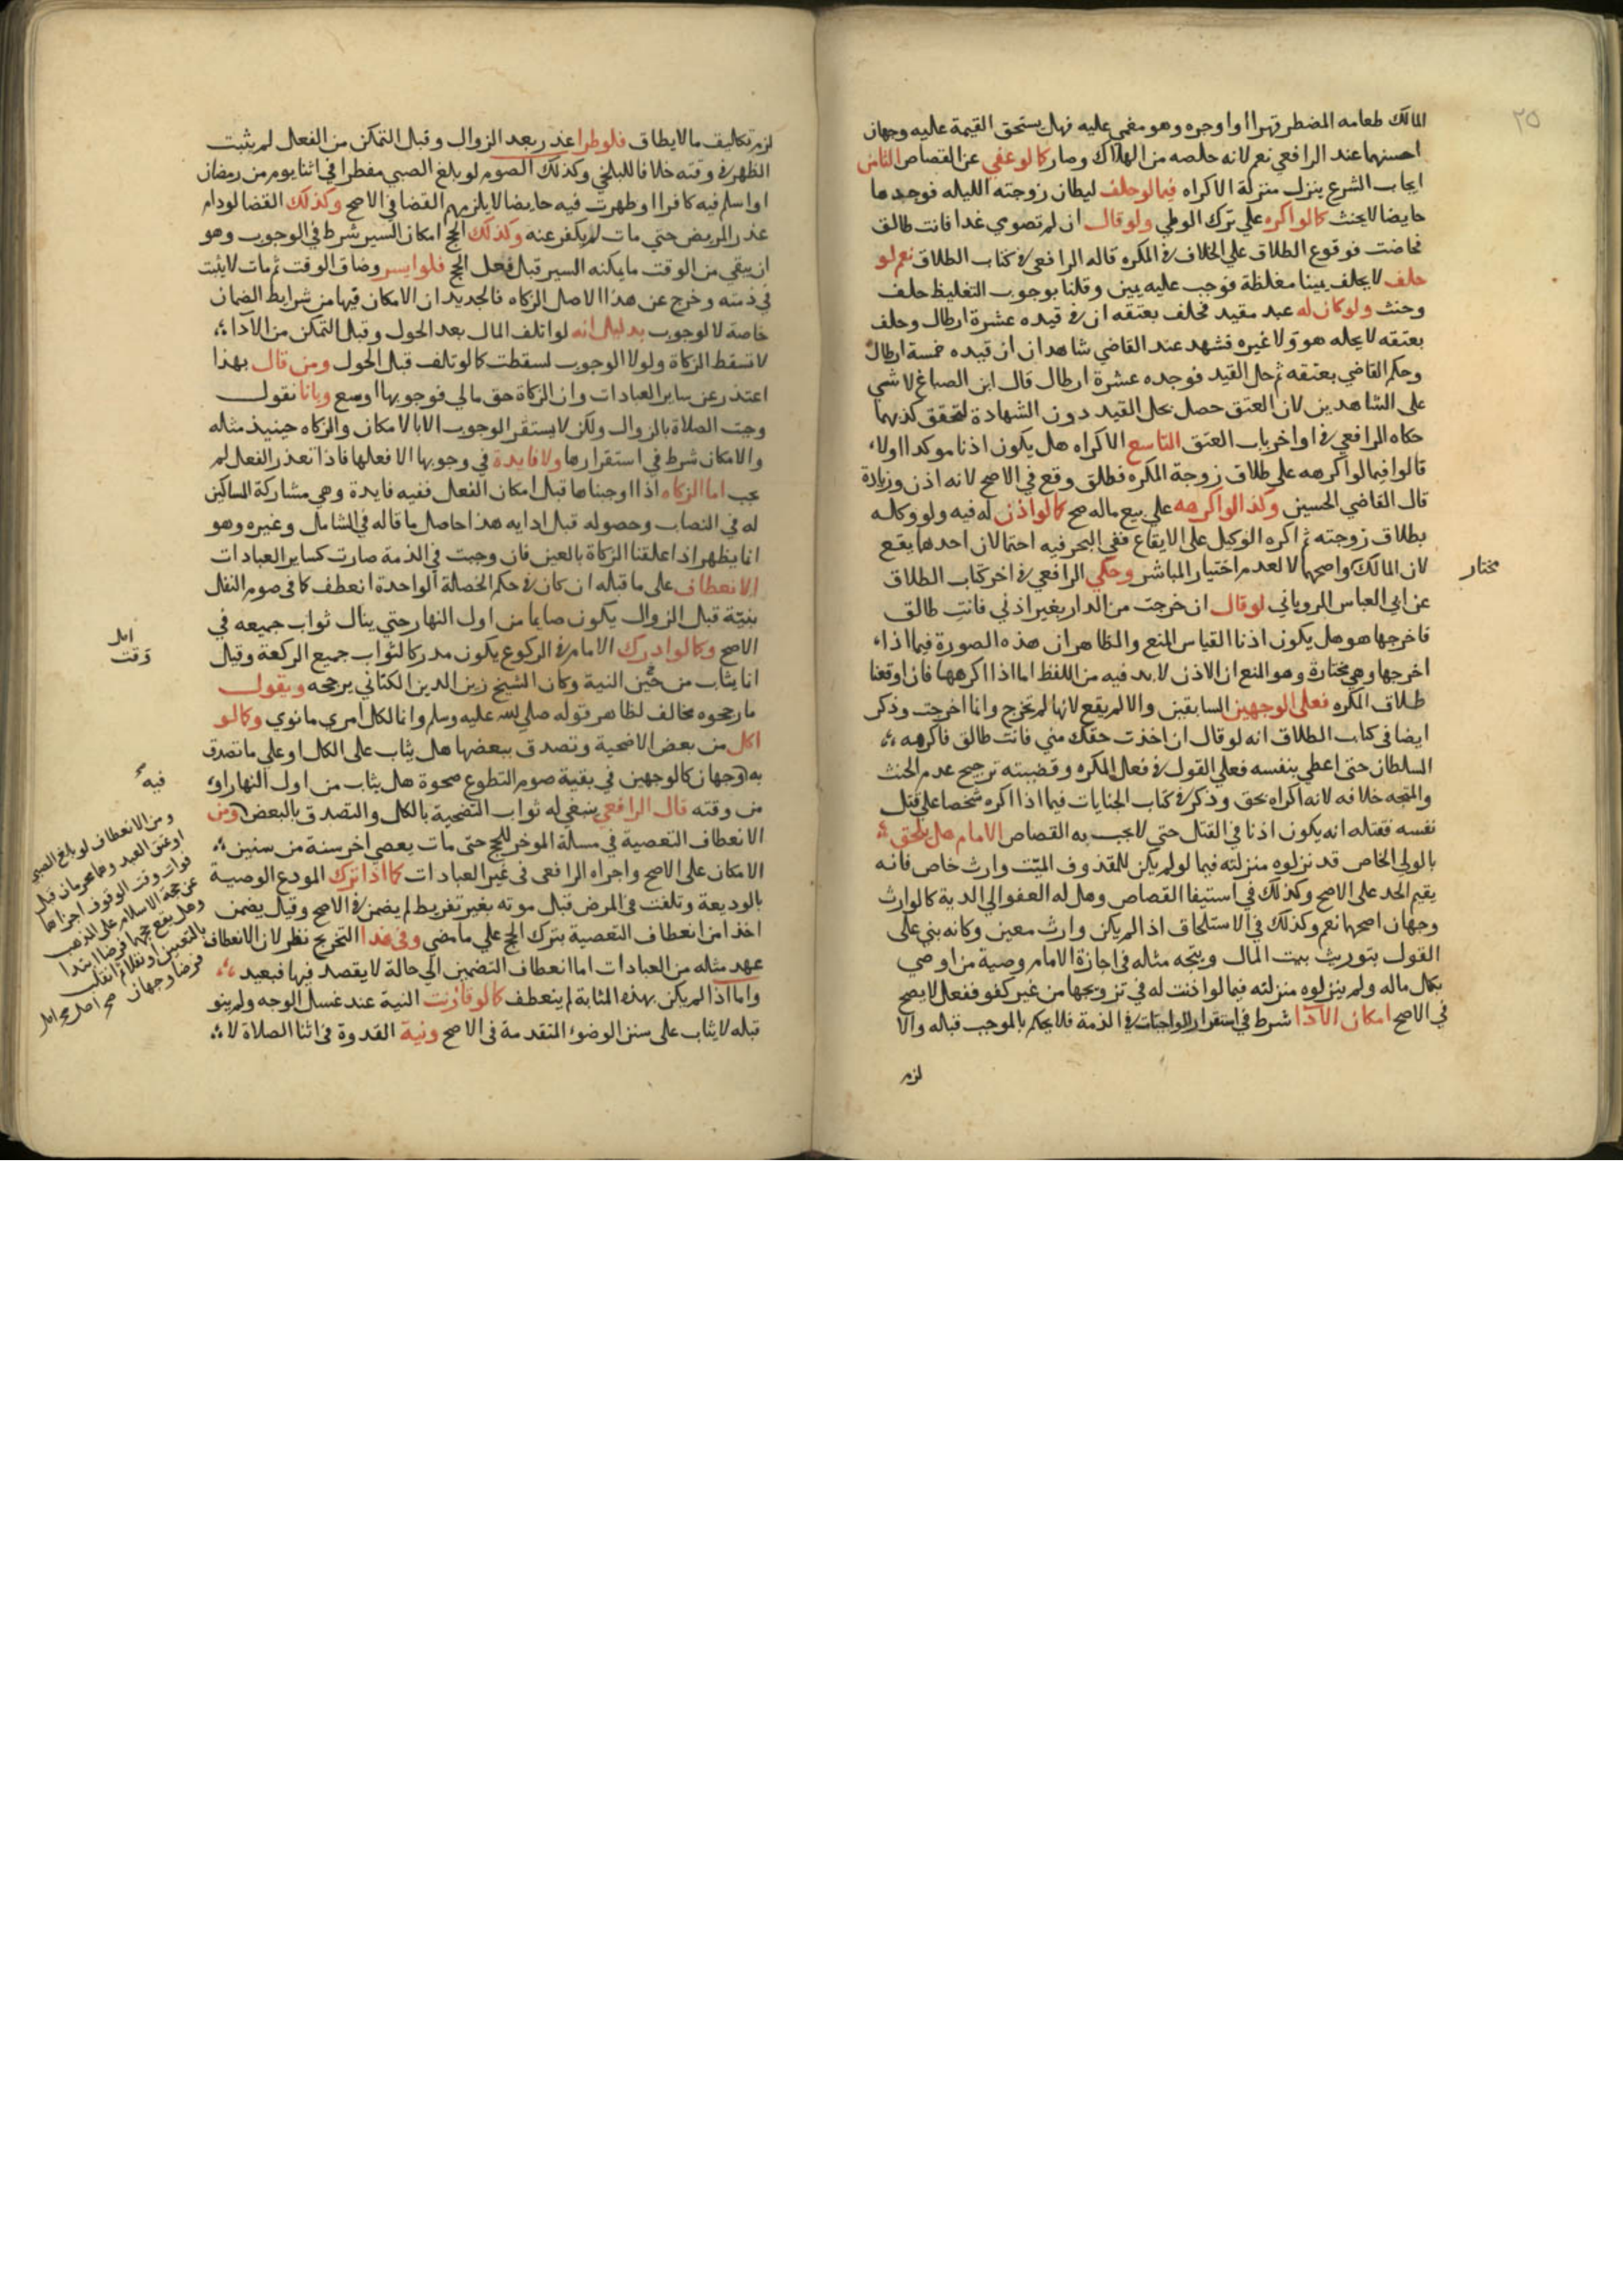 ٢٥
المالك طعامه المضطر قهرا او اوجره وهو مغمي عليه فهل يستحق القيمة عليه وجهان
احسنهما عند الرافعي نعم لانه خلصه من الهلاك وصار كما لو عفي عن القصاص الثامن
ايجاب الشرع ينزل منزلة الاكراه فيما لو حلف ليطان زوجته الليله فوجدها
حايضا لا يحنث كما لو اكره علي ترك الوطي ولو قال ان لم تصومي غدا فانت طالق
فحاضت فوقوع الطلاق علي الخلاف في المكره قاله الرافعي في كتاب الطلاق نعم لو
حلف لا يحلف يمينا مغلظة فوجب عليه يمين وقلنا بوجوب التغليظ حلف
وحنث ولو كان له عبد مقيد فحلف بعتقه ان في قيده عشرة ارطال وحلف
بعتقه لا يحله هو ولا غيره فشهد عند القاضي شاهدان ان قيده خمسة ارطال
وحكم القاضي بعتقه ثم حل القيد فوجده عشرة ارطال قال ابن الصباغ لا شي
على الشاهدين لان العتق حصل بحل القيد دون الشهادة لتحقق كذبهما
حكاه الرافعي في اواخر باب العتق التاسع الاكراه هل يكون اذنا موكدا او لا
قالوا فيما لو اكرهه على طلاق زوجة المكره فطلق وقع في الاصح لانه اذن وزيادة
قال القاضي الحسين وكذا لو اكرهه علي بيع ماله صح كما لو اذن له فيه ولو وكله
بطلاق زوجته ثم اكره الوكيل على الايقاع ففي البحر فيه احتمالان احدهما يقع
لان المالك واصحهما لا لعدم اختيار المباشر وحكي الرافعي في اخر كتاب الطلاق
مختار
عن ابي العباس الروياني لو قال ان خرجت من الدار بغير اذني فانت طالق
فاخرجها هو هل يكون اذنا القياس المنع والظاهر ان هذه الصورة فيما اذا
اخرجها وهي مختارة وهو المنع ان الاذن لا بد فيه من اللفظ اما اذا اكرهها فان اوقعنا
طلاق المكره فعلي الوجهين السابقين والا لم يقع لانها لم تخرج وانما اخرجت وذكر
ايضا في كتاب الطلاق انه لو قال ان اخذت حقك مني فانت طالق فاكرهه
السلطان حتى اعطي بنفسه فعلي القول في فعل المكره وقضيته ترجيح عدم الحنث
والمتجه خلافه لانه اكراه بحق وذكر في كتاب الجنايات فيما اذا اكره شخصا علي قتل
نفسه فقتله انه يكون اذنا في القتل حتى لا يجب به القصاص الامام هل يلحق
بالولي الخاص قد نزلوه منزلته فيما لو لم يكن للمقذوف الميت وارث خاص فانه
يقيم الحد على الاصح وكذلك في استيفا القصاص وهل له العفو الي الدية كالوارث
وجهان اصحهما نعم وكذلك في الاستلحاق اذا لم يكن وارث معين وكانه بني على
القول بتوريث بيت المال ويتجه مثله في اجازة الامام وصية من اوصي
بكل ماله ولم ينزلوه منزلته فيما لو اذنت له في تزويجها من غير كفو ففعل لا يصح
في الاصح امكان الاداء شرط في استقرار الواجبات في الذمة فلا يحكم بالموجب قبله والا
لزم
لزم تكليف ما لا يطاق فلو طرا عذر بعد الزوال وقبل التمكن من الفعل لم يثبت
الظهر في وقته خلافا للبلخي وكذلك الصوم لو بلغ الصبي مفطرا في اثنا يوم من رمضان
او اسلم فيه كافرا او طهرت فيه حايضا لا يلزمهم القضا في الاصح وكذلك القضا لو دام
عذر المريض حتي مات لم يكفر عنه وكذلك الحج امكان السير شرط في الوجوب وهو
ان يبقي من الوقت ما يمكنه السير قبل فعل الحج فلو ايسر وضاق الوقت ثم مات لا يثبت
في ذمته وخرج عن هذا الاصل الزكاه فالجديد ان الامكان فيها من شرايط الضمان
خاصة لا لوجوب بدليل انه لو اتلف المال بعد الحول وقبل التمكن من الاداء
لا تسقط الزكاة ولولا الوجوب لسقطت كما لو تلف قبل الحول ومن قال بهذا
اعتذر عن ساير العبادات وان الزكاة حق مالي فوجوبها اوسع وبانا نقول
وجبت الصلاة بالزوال ولكن لا يستقر الوجوب الا بالامكان والزكاه حينيذ مثله
والامكان شرط في استقرارها ولا فايدة في وجوبها الا فعلها فاذا تعذر الفعل لم
يجب اما الزكاه اذا اوجبناها قبل امكان الفعل ففيه فايدة وهي مشاركة المساكين
له في النصاب وحصوله قبل ادايه هذا حاصل ما قاله في الشامل وغيره وهو
انما يظهر اذا علقنا الزكاة بالعين فان وجبت في الذمة صارت كساير العبادات
الانعطاف على ما قبله ان كان في حكم الخصلة الواحدة انعطف كما في صوم النفل
بنية قبل الزوال يكون صايما من اول النهار حتي ينال ثواب جميعه في
الاصح وكما لو ادرك الامام في الركوع يكون مدركا لثواب جميع الركعة وقيل
وقت
انما يثاب من حين النية وكان الشيخ زين الدين الكتاني يرجحه ويقول
ما رجحوه مخالف لظاهر قوله صلي الله عليه وسلم وانما لكل امري ما نوي وكما لو
اكل من بعض الاضحية وتصدق ببعضها هل يثاب على الكل او علي ما تصدق
به وجهان كالوجهين في بقية صوم التطوع ضحوة هل يثاب من اول النهار او
فيه
من وقته قال الرافعي ينبغي له ثواب التضحية بالكل والتصدق بالبعض ومن
الانعطاف التعصية في مسالة الموخر للحج حتى مات يعصي اخر سنة من سنين
الامكان على الاصح واجراه الرافعي في غير العبادات كما اذا ترك المودع الوصية
بالوديعة وتلفت في المرض قبل موته بغير تفريط لم يضمن في الاصح وقيل يضمن
اخذا من انعطاف التعصية بترك الحج علي ما مضي وفي هذا التخريج نظر لان الانعطاف
عهد مثله من العبادات اما انعطاف التضمين الي حالة لا يقصد فيها فبعيد
واما اذا لم يكن بهذه المثابة لم ينعطف كما لو قارنت النية عند غسل الوجه ولم ينو
قبله لا يثاب على سنن الوضوء المتقدمة في الاصح ونية القدوة في اثنا الصلاة لا
ومن الانعطاف لو بلغ الصبي
او عتق العبد وهما محرمان قبل
فوات وقت الوقوف اجزاهما
عن حجة الاسلام على المذهب
وهل يقع حجهما فرضا ابتدا
بالتعيين او نفلا ثم انقلب
فرضا وجهان صح